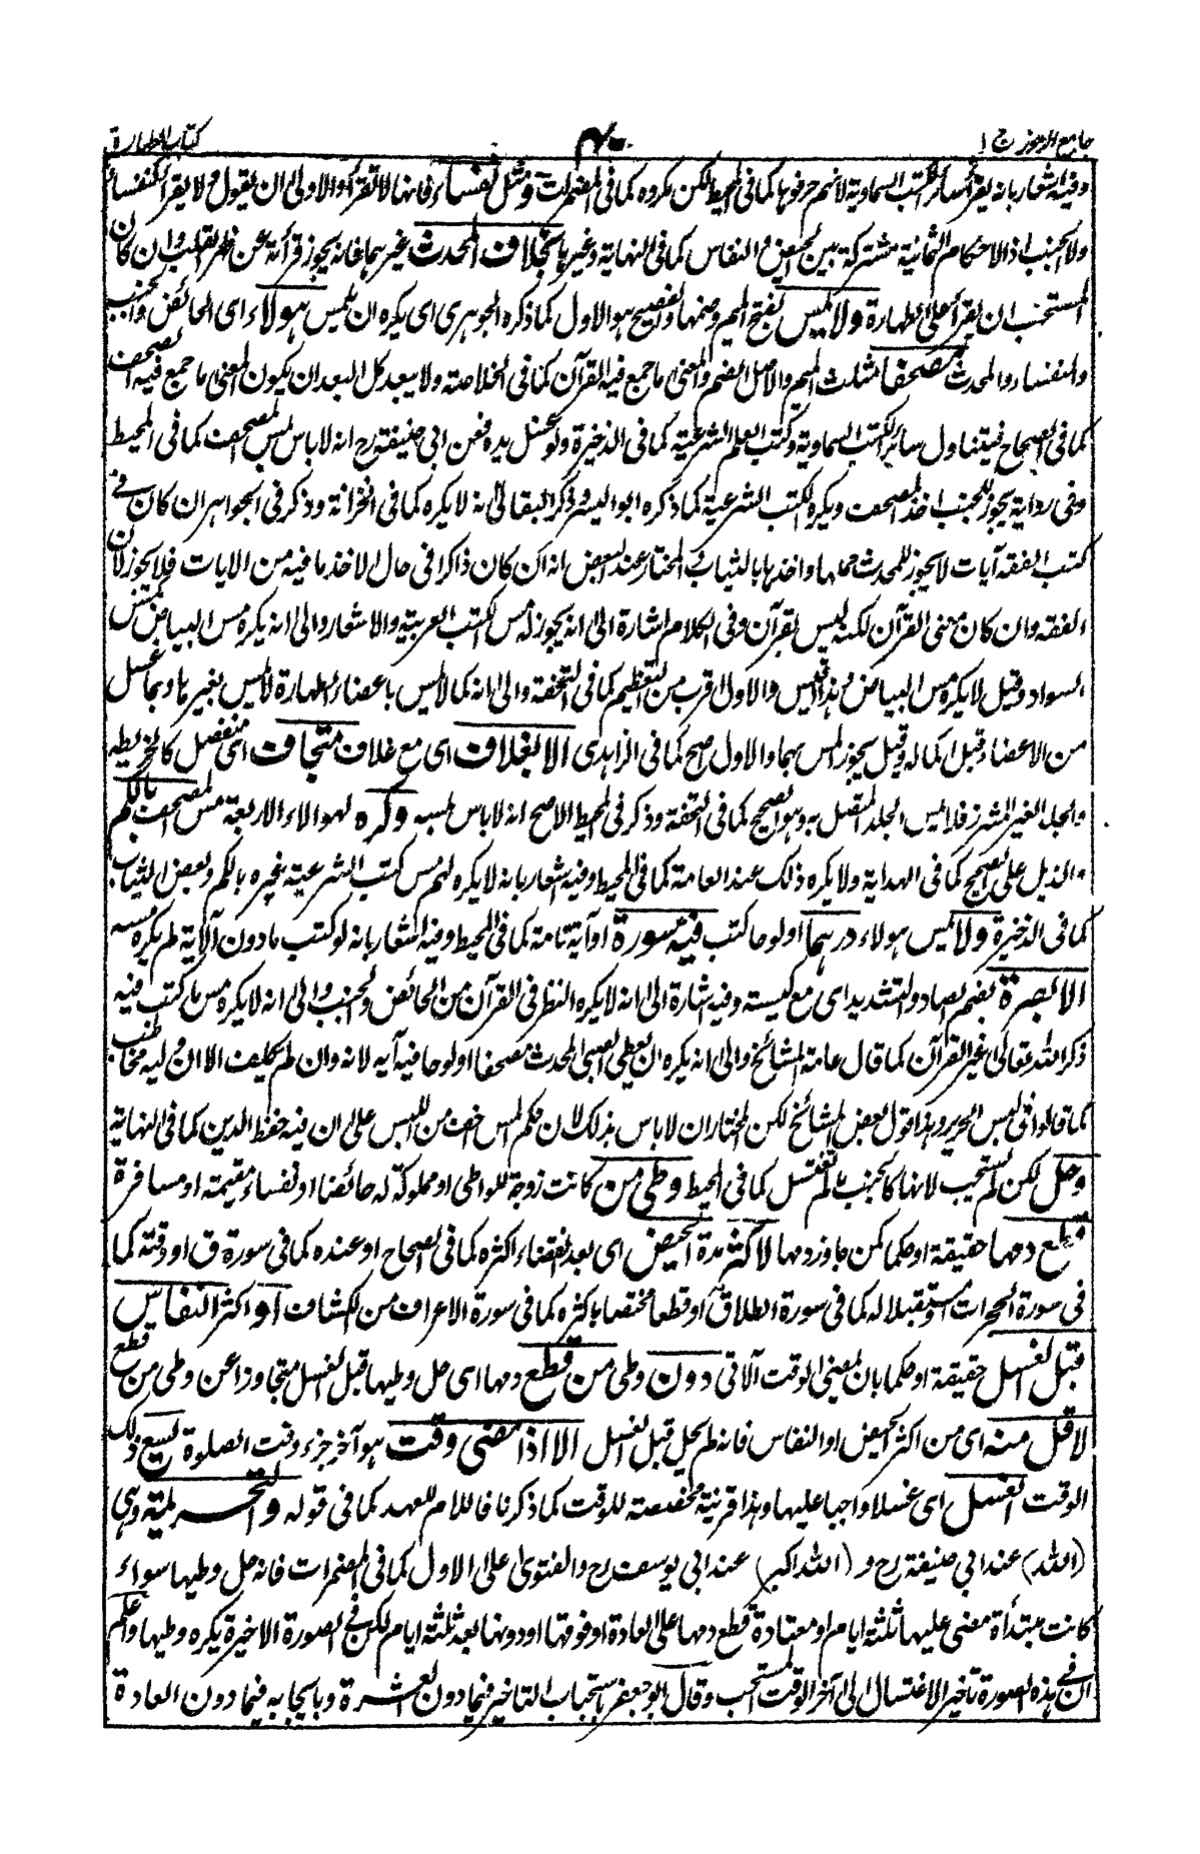 جامع الرموز ج ١ ٤٠ كتاب الطهارة
وفيه اشعار بانه يقرأ سائر الكتب السماوية لانهم حرفوها كما فى المحيط لكن مكروه كما فى المضمرات ومثل نفساء فانها لا تقرأ والاولى ان يقول ولا يقرأ كنفساء
ولا جنب اذ الاحكام الثمانية مشتركة بين الحيض والنفاس كما فى النهاية وغيرها بخلاف المحدث غيرهما فانه يجوز قرأته عن ظهر القلب وان كان
المستحب ان يقرأ على الطهارة ولا يمس بفتح الميم وضمها والفصيح هو الاول كما ذكره الجوهرى اى يكره ان يمس هولاء اى الحائض والجنب
والنفساء والمحدث مصحفا مثلث الميم والاصل الضم والمعنى ما جمع فيه القرآن كما فى الخلاصة ولا يبعد كل البعد ان يكون المعنى ما جمع فيه الصحف
كما فى الصحاح فيتناول سائر الكتب السماوية وكتب العلم الشرعية كما فى الذخيرة ولو غسل يده فعن ابى حنيفة رح انه لا باس بمس المصحف كما فى المحيط
وفى رواية يجوز للجنب اخذ المصحف ويكره الكتب الشرعية كما ذكره ابو اليسر وذكر البقالى انه لا يكره كما فى الخزانة وذكر فى الجواهر ان كان فى
كتب الفقه آيات لا يجوز للمحدث حملها واخذها بالثياب والمختار عند البعض انه ان كان ذاكرا فى حال الاخذ ما فيه من الايات فلا يجوز لان
الفقه وان كان معنى القرآن لكنه ليس بقرآن وفى الكلام اشارة الى انه يجوز له مس الكتب العربية والاشعار والى انه يكره مس البياض كمس
السواد وقيل لا يكره مس البياض وهذا اقيس والاول اقرب من التعظيم كما فى التحفة والى انه كما لا يمس باعضاء الطهارة لا يمس بغيرها وبما غسل
من الاعضاء قبل اكماله وقيل يجوز المس بهما والاول اصح كما فى الزاهدى الا بغلاف اى مع غلاف متجاف اى منفصل كالخريطة
والجلد الغير المشرز فلا يمس الجلد المتصل به وهو الصحيح كما فى التحفة وذكر فى المحيط الاصح انه لا باس لمسه وكره لهولاء الاربعة مس المصحف بالكم
والذيل على الصحيح كما فى الهداية ولا يكره ذلك عند العامة كما فى المحيط وفيه اشعار بانه لا يكره لهم مس كتب الشرعية وغيره بالكم وبعض الثياب
كما فى الذخيرة ولا يمس هولاء درهما او لوحا كتب فيه سورة او آية تامة كما فى المحيط وفيه اشعار بانه لو كتب ما دون الآية لم يكره مسه
الا بصرة بضم الصاد والتشديد اى مع كيسته وفيه اشارة الى انه لا يكره النظر فى القرآن من الحائض والجنب والى انه لا يكره مس ما كتب فيه
ذكر الله تعالى غير القرآن كما قال عامة المشائخ والى انه يكره ان يعطى الصبى المحدث مصحفا او لوحا فيه آية لانه وان لم يكلف الا ان وليه مخاطب
كما قالوا فى لبس الحرير وهذا قول بعض المشائخ لكن المختار ان لا باس بذلك لان حكم المس اخف من اللبس على ان فيه حفظ الدين كما فى النهاية
وحل لكن لم يستحب لانها كالجنب ما لم تغتسل كما فى المحيط وطى من كانت زوجة للواطى او مملوكة له حائضا او نفساء مقيمة او مسافرة
قطع دمها حقيقة او حكما كمن جاوز دمها لاكثر مدة الحيض اى بعد انقضاء اكثره كما فى الصحاح او عنده كما فى سورة ق او وقته كما
فى سورة الحجرات او مستقبلا له كما فى سورة الطلاق او قطعا مختصا باكثره كما فى سورة الاعراف من الكشاف او اكثر النفاس
قبل الغسل حقيقة او حكما بان لمضى الوقت الآتى دون وطى من قطع دمها اى حل وطيها قبل الغسل متجاوزا عن وطى من قطع
لاقل منه اى من اكثر الحيض او النفاس فانه لم يحل قبل الغسل الا اذا مضى وقت هو آخر جزء وقت الصلوة يسع ذلك
الوقت الغسل اى غسلا واجبا عليها وهذا قرينة مخصصة للوقت كما ذكرنا فاللام للعهد كما فى قوله والتحريمة وهى
(الله) عند ابى حنيفة رح و (الله اكبر) عند ابى يوسف رح والفتوى على الاول كما فى المضمرات فانه حل وطيها سواء
كانت مبتدأة مضى عليها ثلثة ايام او معتادة قطع دمها على العادة او فوقها او دونها بعد ثلثة ايام لكن فى الصورة الاخيرة يكره وطيها واعلم
ان فى هذه الصورة تاخير الاغتسال الى آخر الوقت المستحب وقال ابو جعفر باستحباب التاخير فيما دون العشرة وبايجابه فيما دون العادة